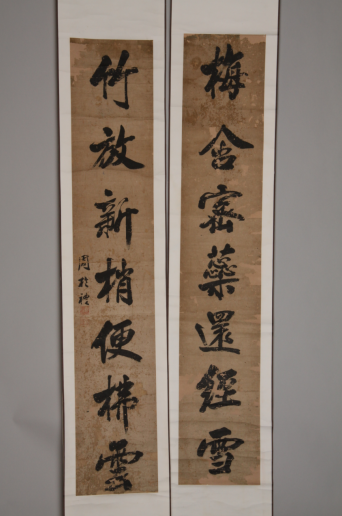 梅含密蘂還經雪
竹放新梢便拂雲
周於禮